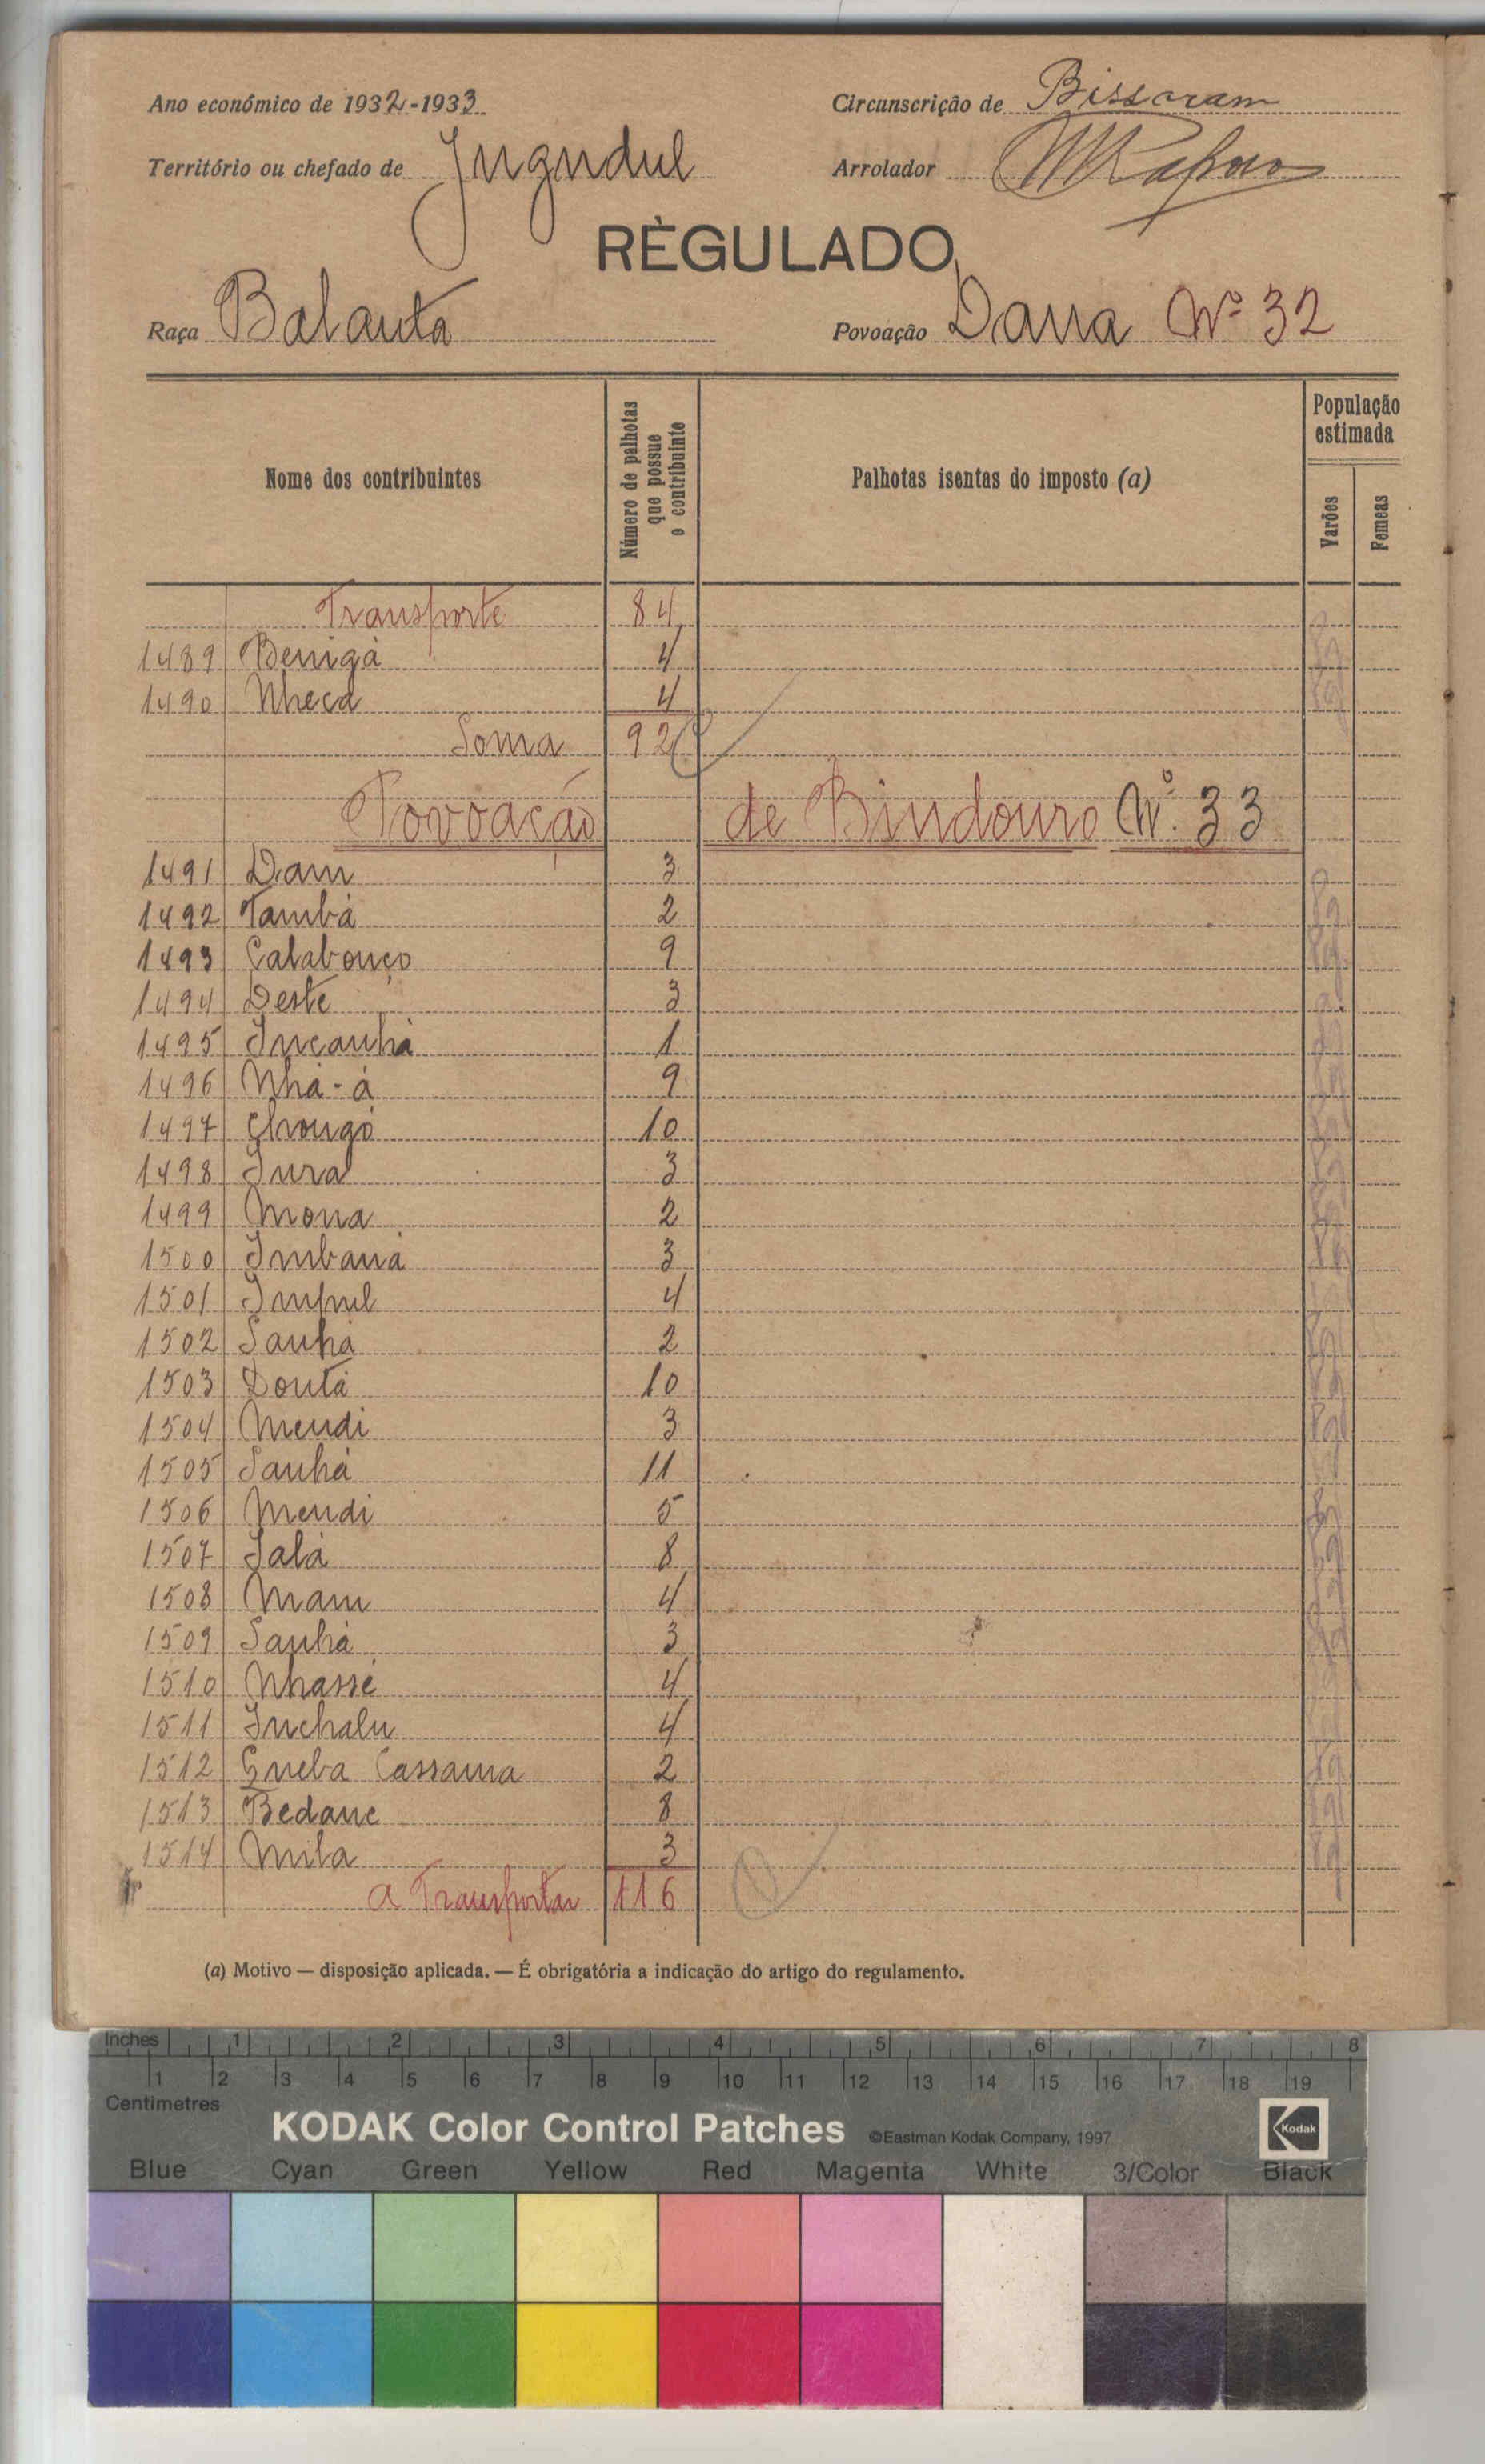 Ano económico de 1932-1933 Circunscrição de Bissoram
Território ou chefado de Jugudul Arrolador
RÈGULADO
Raça Balanta Povoação Dana Nº 32
Nome dos contribuintes Número de palhotas que possue o contribuinte Palhotas isentas do imposto (a) População estimada Varões Femeas
Transporte 84
1489 Benigà 4
1490 Nheca 4
Soma 92
Povoação de Bindouro Nº. 33
1491 Dam 3
1492 Tambà 2
1493 Calabouço 9
1494 Deste 3
1495 Incanhà 1
1496 Nhà-à 9
1497 10
1498 Jura 3
1499 Mona 2
1500 Imbanà 3
1501 Impul 4
1502 Sanhà 2
1503 Doutà 10
1504 Mendi 3
1505 Sanhà 11
1506 Mendi 5
1507 Salà 8
1508 Mam 4
1509 Sanhà 3
1510 Nhassé 4
1511 Inchalu 4
1512 Cassama 2
1513 Bedanc 8
1514 Mila 3
a Transportar 116
(a) Motivo — disposição aplicada. — É obrigatória a indicação do artigo do regulamento.
Inches 1 2 3 4 5 6 7 8
1 2 3 4 5 6 7 8 9 10 11 12 13 14 15 16 17 18 19
Centimetres
KODAK Color Control Patches ©Eastman Kodak Company, 1997 Kodak
Blue Cyan Green Yellow Red Magenta White 3/Color Black